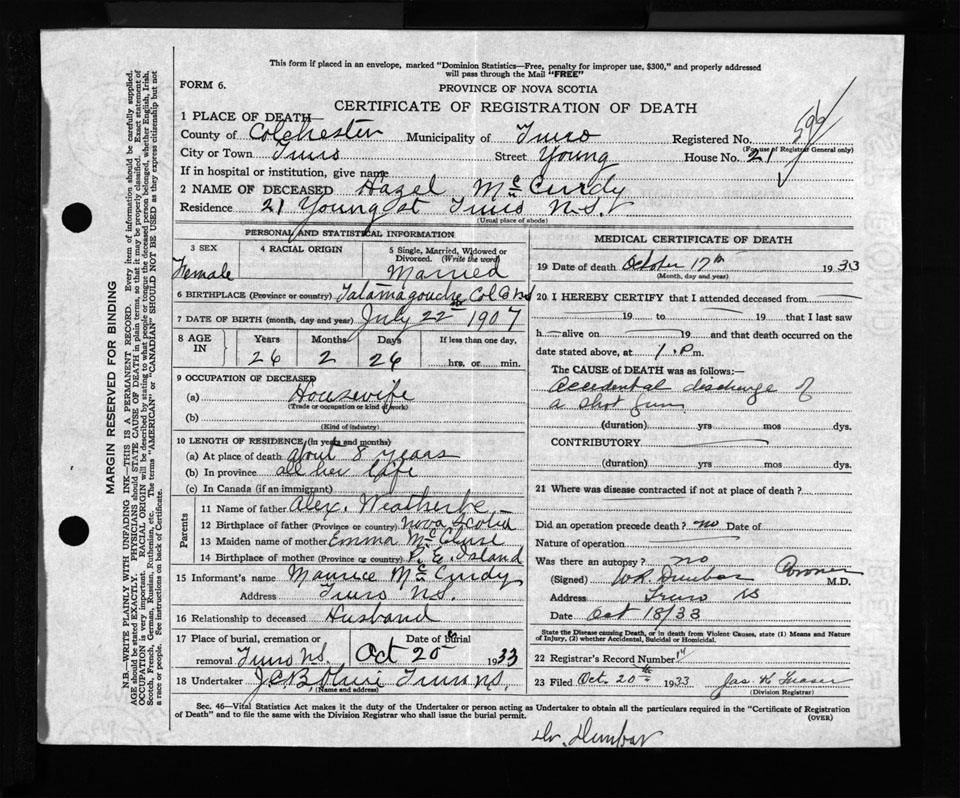 This form if placed in an envelope, marked "Dominion Statistics—Free, penalty for improper use, $300," and properly addressed
will pass through the Mail "FREE"
FORM 6.
PROVINCE OF NOVA SCOTIA
CERTIFICATE OF REGISTRATION OF DEATH
599
1 PLACE OF DEATH—
County of Colchester Municipality of Truro Registered No.
(For use of Registrar General only)
City or Town Truro Street Young House No. 21
If in hospital or institution, give name
2 NAME OF DECEASED Hazel McCurdy
Residence 21 Young St Truro N.S.
(Usual place of abode)
PERSONAL AND STATISTICAL INFORMATION
3 SEX 4 RACIAL ORIGIN 5 Single, Married, Widowed or
Divorced. (Write the word)
Female Married
6 BIRTHPLACE (Province or country) Tatamagouche Col Co NS
7 DATE OF BIRTH (month, day and year) July 22nd 1907
8 AGE IN Years Months Days If less than one day,
26 2 26 hrs. or min.
9 OCCUPATION OF DECEASED
(a) Housewife
(Trade or occupation or kind of work)
(b)
(Kind of industry)
10 LENGTH OF RESIDENCE (in years and months)
(a) At place of death about 8 years
(b) In province all her life
(c) In Canada (if an immigrant)
Parents
11 Name of father Alex. Weatherbe
12 Birthplace of father (Province or country) Nova Scotia
13 Maiden name of mother Emma McClure
14 Birthplace of mother (Province or country) P. E. Island
15 Informant's name Maurice McCurdy
Address Truro N.S.
16 Relationship to deceased Husband
17 Place of burial, cremation or Date of burial
removal Truro N.S. Oct 20th 1933
18 Undertaker Truro N.S.
(Name and address)
MEDICAL CERTIFICATE OF DEATH
19 Date of death October 17th 1933
(Month, day and year)
20. I HEREBY CERTIFY that I attended deceased from
19 to 19 that I last saw
h alive on 19 and that death occurred on the
date stated above, at 1 P m.
The CAUSE of DEATH was as follows:—
Accidental discharge of
a shot gun
(duration) yrs mos dys.
CONTRIBUTORY
(duration) yrs mos dys.
21 Where was disease contracted if not at place of death?
Did an operation precede death? no Date of
Nature of operation
Was there an autopsy? no
(Signed) Dunbar Coroner M.D.
Address Truro NS
Date Oct 18/33
State the Disease causing Death, or in death from Violent Causes, state (1) Means and Nature
of Injury, (2) whether Accidental, Suicidal or Homicidal.
22 Registrar's Record Number
23 Filed Oct. 20th 1933 Jas. K Fraser
(Division Registrar)
Sec. 46—Vital Statistics Act makes it the duty of the Undertaker or person acting as Undertaker to obtain all the particulars required in the "Certificate of Registration
of Death" and to file the same with the Division Registrar who shall issue the burial permit.
(OVER)
Dr. Dunbar
MARGIN RESERVED FOR BINDING
N.B.—WRITE PLAINLY WITH UNFADING INK—THIS IS A PERMANENT RECORD. Every item of information should be carefully supplied.
AGE should be stated EXACTLY. PHYSICIANS should STATE CAUSE OF DEATH in plain terms, so that it may be properly classified. Exact statement of
OCCUPATION is very important. RACIAL ORIGIN will be described by stating to what people or tongue the deceased person belonged, whether English, Irish,
Scotch, French, German, Russian, Ruthenian, etc. The terms "AMERICAN" or "CANADIAN" SHOULD NOT BE USED as they express citizenship but not
a race or people. See instructions on back of Certificate.